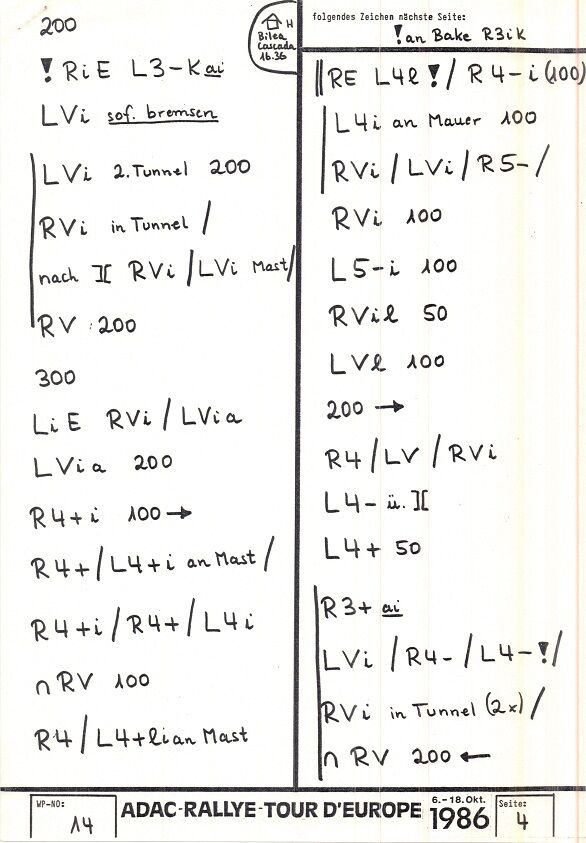 200
H
Bilea
Cascada
16.36
! RiE L3-Kai
LVi sof. bremsen
LVi 2. Tunnel 200
RVi in Tunnel /
nach ][ RVi / LVi Mast/
RV 200
300
LiE RVi / LVia
LVia 200
R4+i 100→
R4+/L4+i an Mast/
R4+i/R4+/L4i
∩ RV 100
R4/L4+li an Mast
folgendes Zeichen nächste Seite:
! an Bake R3iK
RE L4l ! / R4-i (100)
L4i an Mauer 100
RVi / LVi / R5- /
RVi 100
L5-i 100
RVil 50
LVl 100
200 →
R4/LV/RVi
L4- ü. ][
L4+ 50
R3+ ai
LVi / R4- / L4-! /
RVi in Tunnel (2x) /
∩ RV 200 ←
WP-NO:
14
ADAC-RALLYE-TOUR D'EUROPE
6.-18.Okt.
1986
Seite:
4